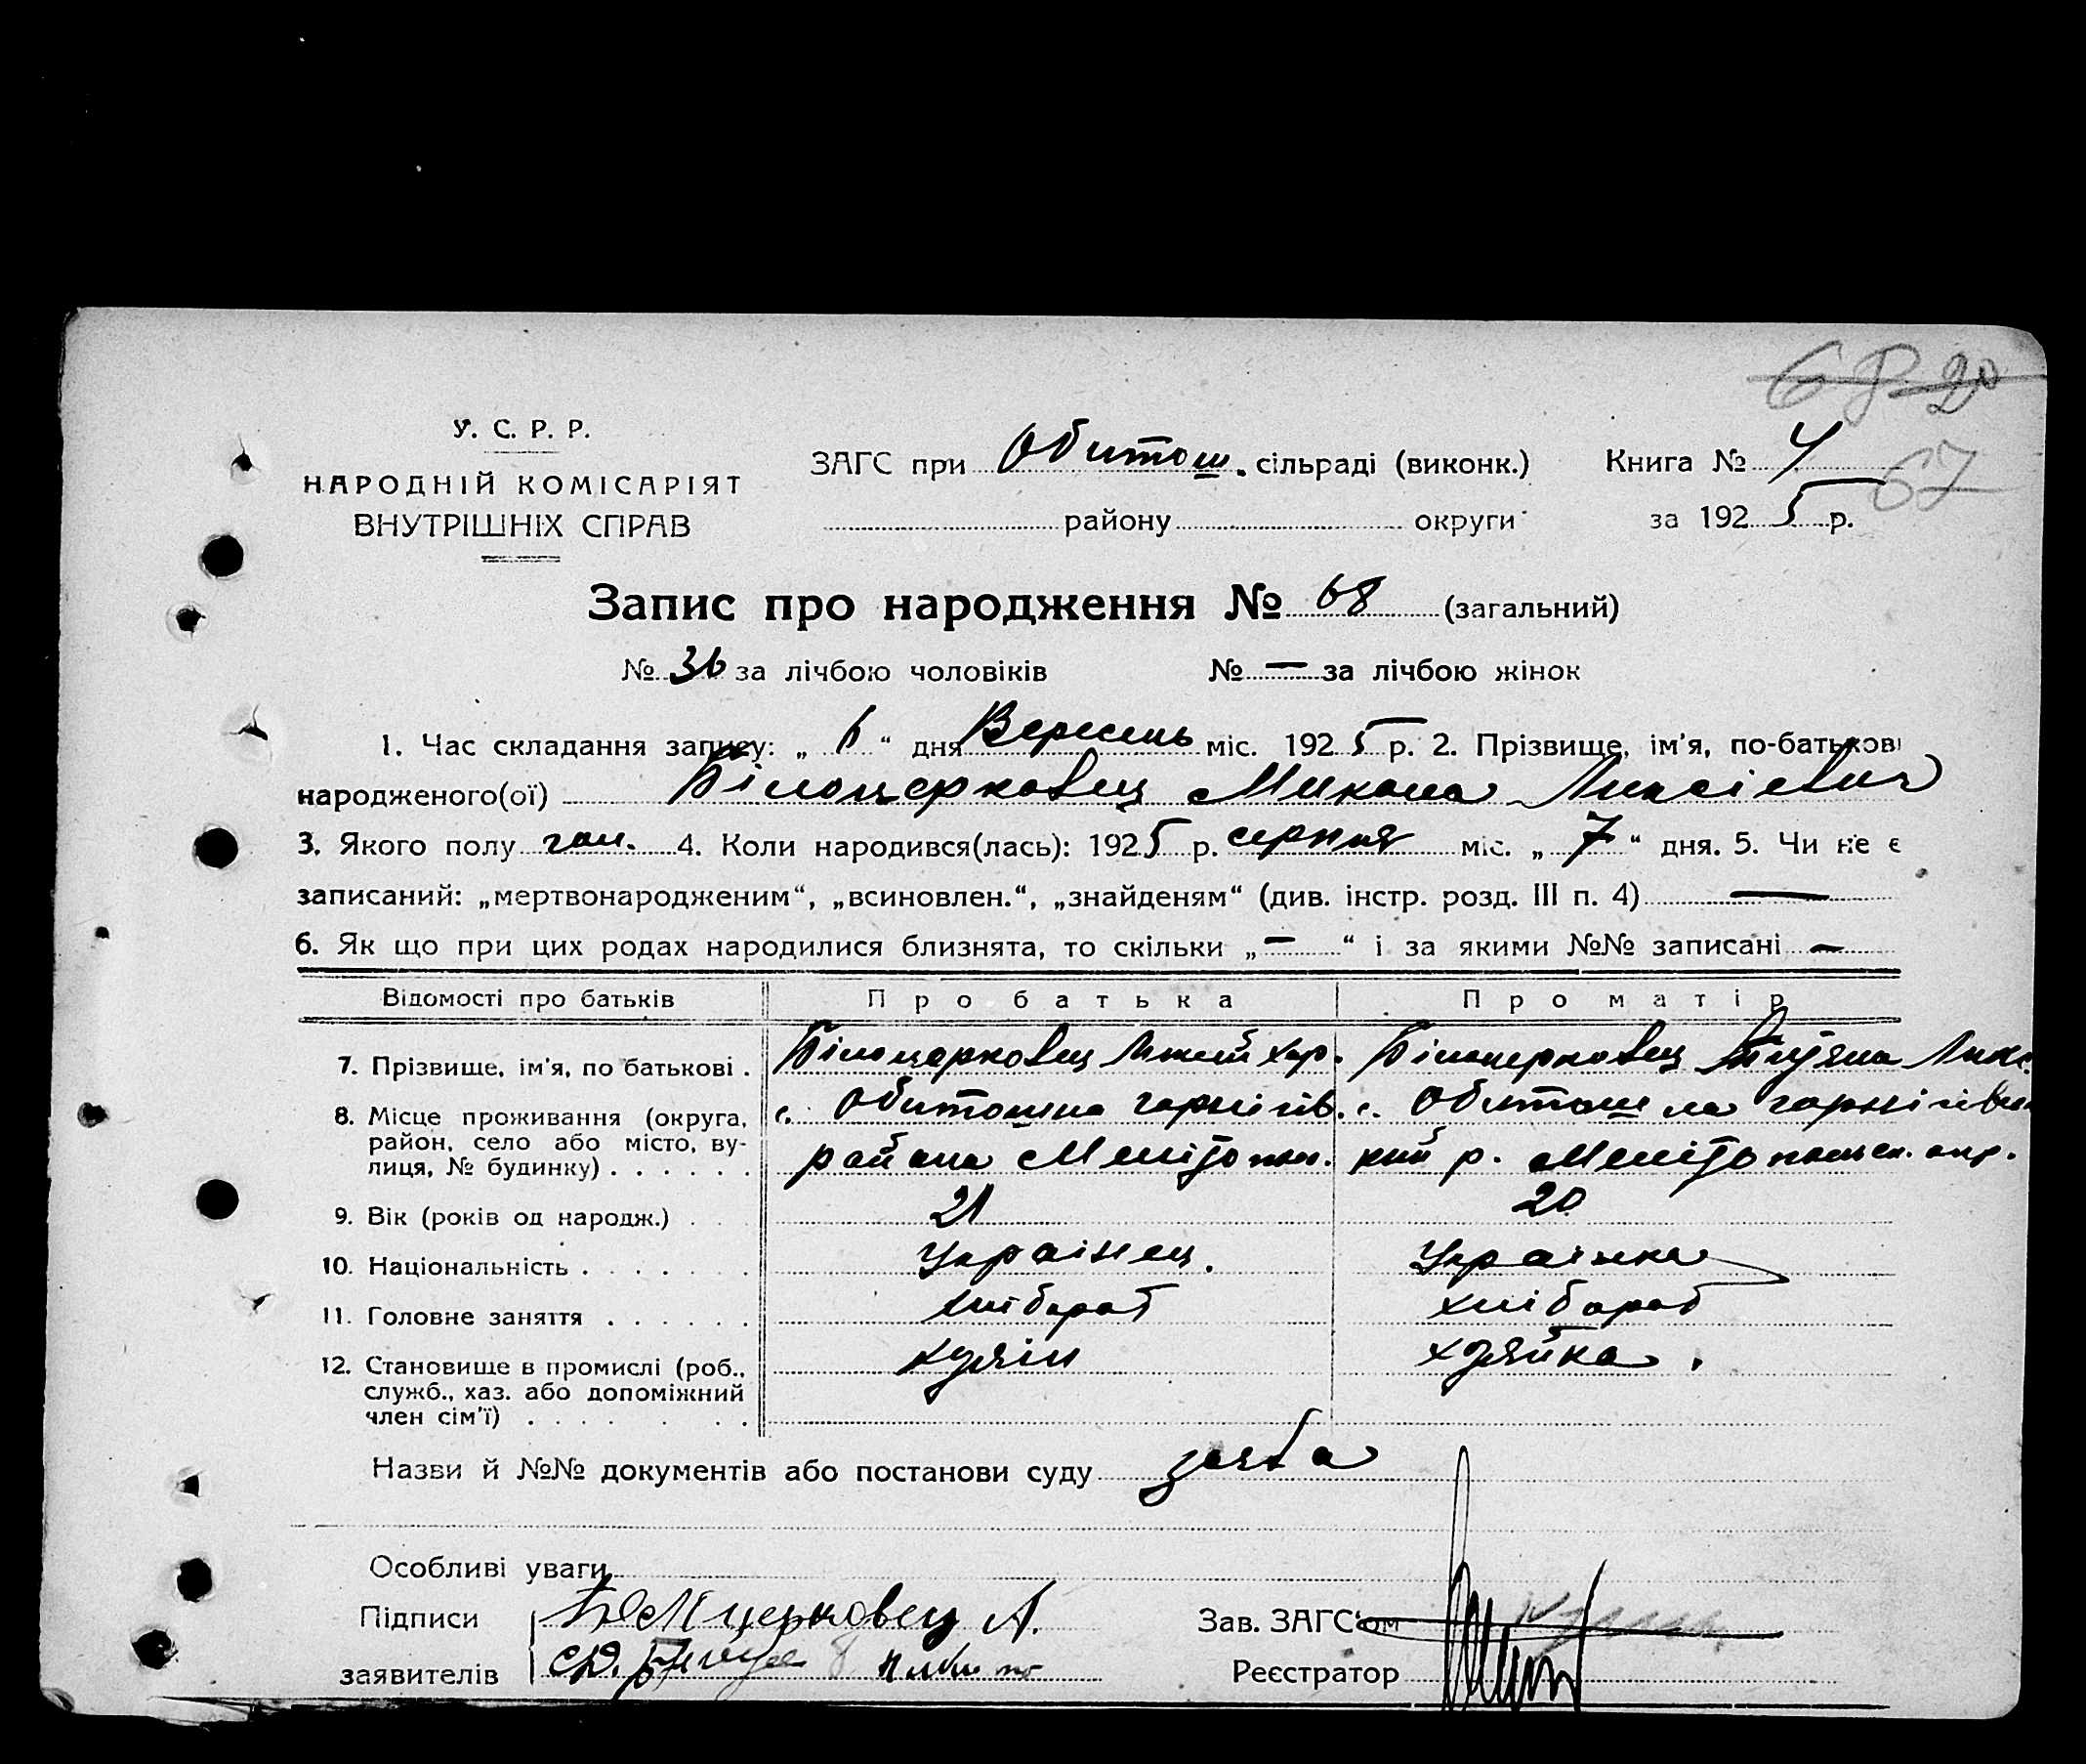 68 20
У. С. Р. Р.
НАРОДНІЙ КОМІСАРІЯТ
ВНУТРІШНІХ СПРАВ
ЗАГС при Обиточ. сільраді (виконк.)
району округи
Книга № 4
67
за 1925 р.
Запис про народження № 68 (загальний)
№ 36 за лічбою чоловіків № — за лічбою жінок
1. Час складання запису: „ 6 “ дня Вересень міс. 1925 р. 2. Прізвище, ім'я, по-батькові
народженого(ої) Білоцерковец Микола Ликсієвич
3. Якого полу чол. 4. Коли народився(лась): 1925 р. серпня міс. „ 7 “ дня. 5. Чи не є
записаний: „мертвонародженим“, „всиновлен.“, „знайденям“ (див. інстр. розд. III п. 4) —
6. Як що при цих родах народилися близнята, то скільки „ — “ і за якими №№ записані —
Відомості про батьків Про батька Про матір
7. Прізвище, ім'я, по батькові . Білоцерковец Ликсій Хар. Білоцерковец Ликс.
8. Місце проживання (округа, район, село або місто, вулиця, № будинку) . . . . . .
с. Обиточна чернігів. района Мелітоп.
с. Обиточна чернігівский р. Мелітопольск. окр.
9. Вік (років од народж.) . . 21 20
10. Національність . . . . . . Українец. Українка
11. Головне заняття . . . . . . хлібороб хлібороб
12. Становище в промислі (роб., служб., хаз. або допоміжний член сім'ї) . . . . . хузяін хузяйка.
Назви й №№ документів або постанови суду заява
Особливі уваги
Підписи Білоцерковец А.
заявителів
Зав. ЗАГС'ом
Реєстратор